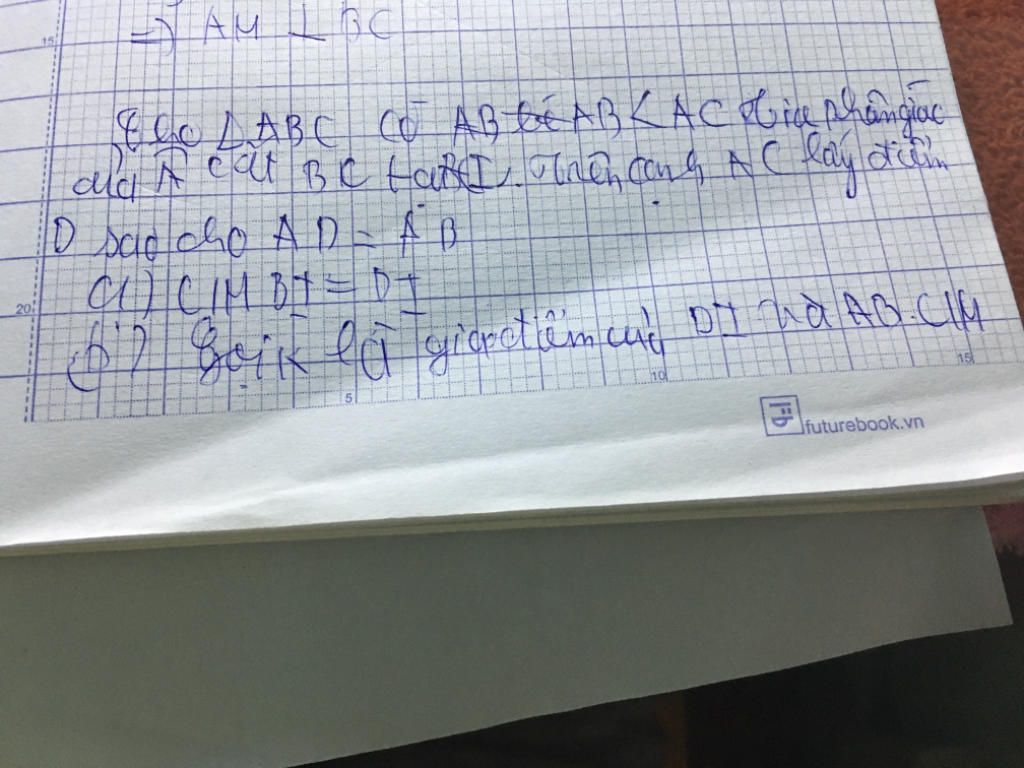 15
=> AM ⊥ BC
Cho ΔABC có AB AB < AC Tia phân giác
của Â cắt BC tại I. Trên cạnh AC lấy điểm
D sao cho AD = AB
a) C/M BI = DI
20
b) Gọi K là giao điểm của DI và AB. C/M
5 10 15
futurebook.vn